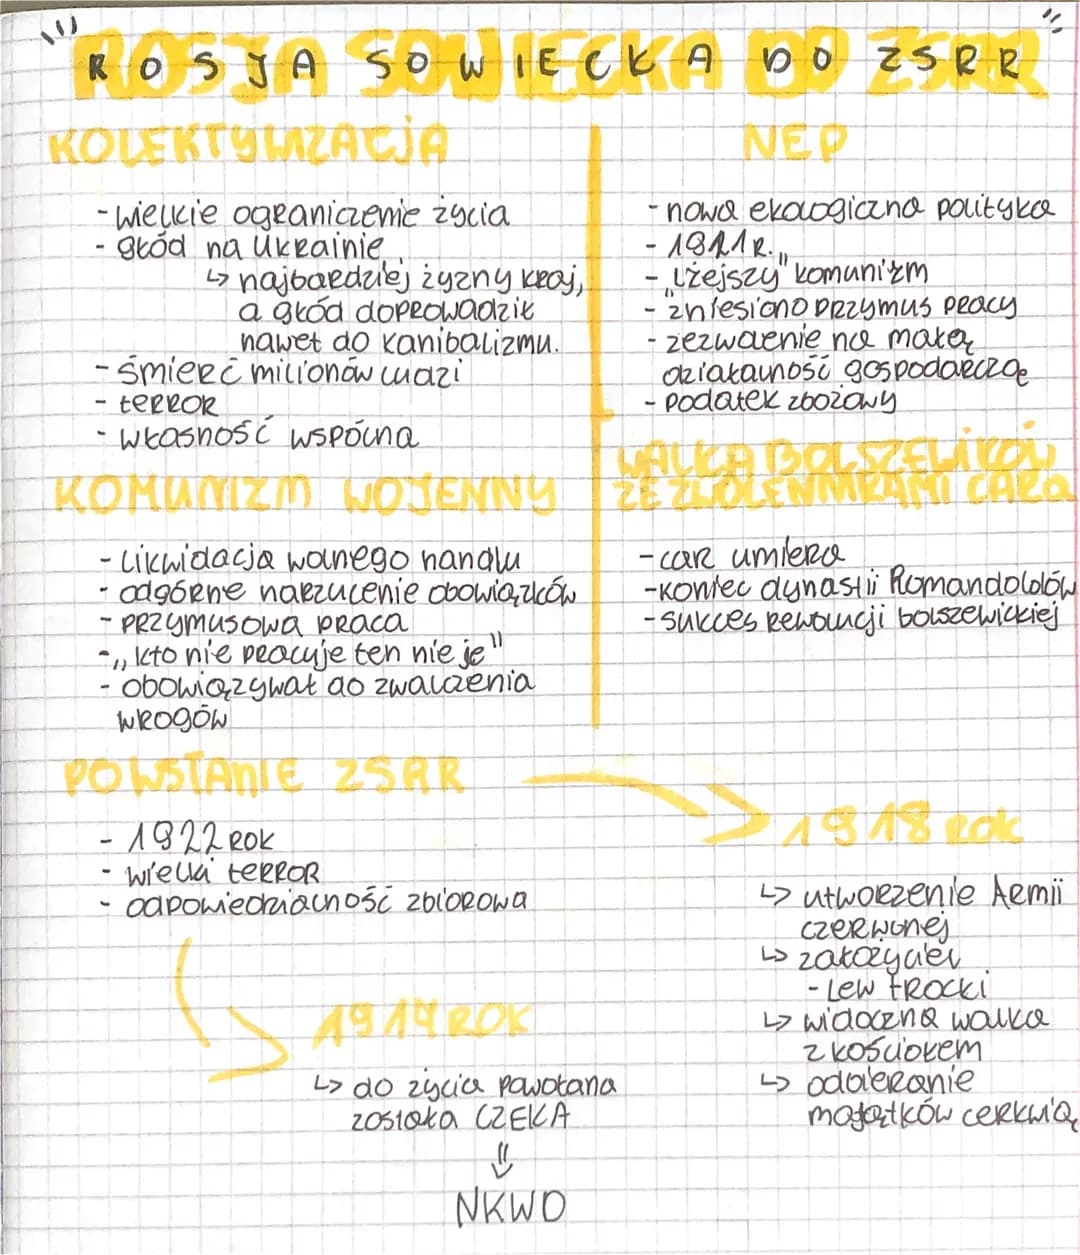 "ROSJA SOWIECKA DO ZSRR"
KOLEKTYWIZACJA
- wielkie ograniczenie życia
- głód na Ukrainie
↳ najbardziej żyzny kraj,
a głód doprowadził
nawet do kanibalizmu.
- śmierć milionów ludzi
- terror
- własność wspólna
KOMUNIZM WOJENNY
- likwidacja wolnego handlu
- odgórne narzucenie obowiązków
- przymusowa praca
- „kto nie pracuje ten nie je"
- obowiązywał do zwalczenia
wrogów
NEP
- nowa ekologiczna polityka
- 1921 r.
- „lżejszy" komunizm
- zniesiono przymus pracy
- zezwolenie na małą
działalność gospodarczą
- podatek zbożowy
WALKA BOLSZEWIKÓW
ZE ZWOLENNIKAMI CARA
- car umiera
- koniec dynastii Romandoldów
- sukces rewolucji bolszewickiej
POWSTANIE ZSRR
- 1922 rok
- wielki terror
- odpowiedzialność zbiorowa
1918 rok
↳ utworzenie Armii
czerwonej
↳ założyciel
- Lew Trocki
↳ widoczna walka
z kościołem
↳ odbieranie
majątków cerkwią
1917 ROK
↳ do życia powołana
została CZEKA
⇓
NKWD